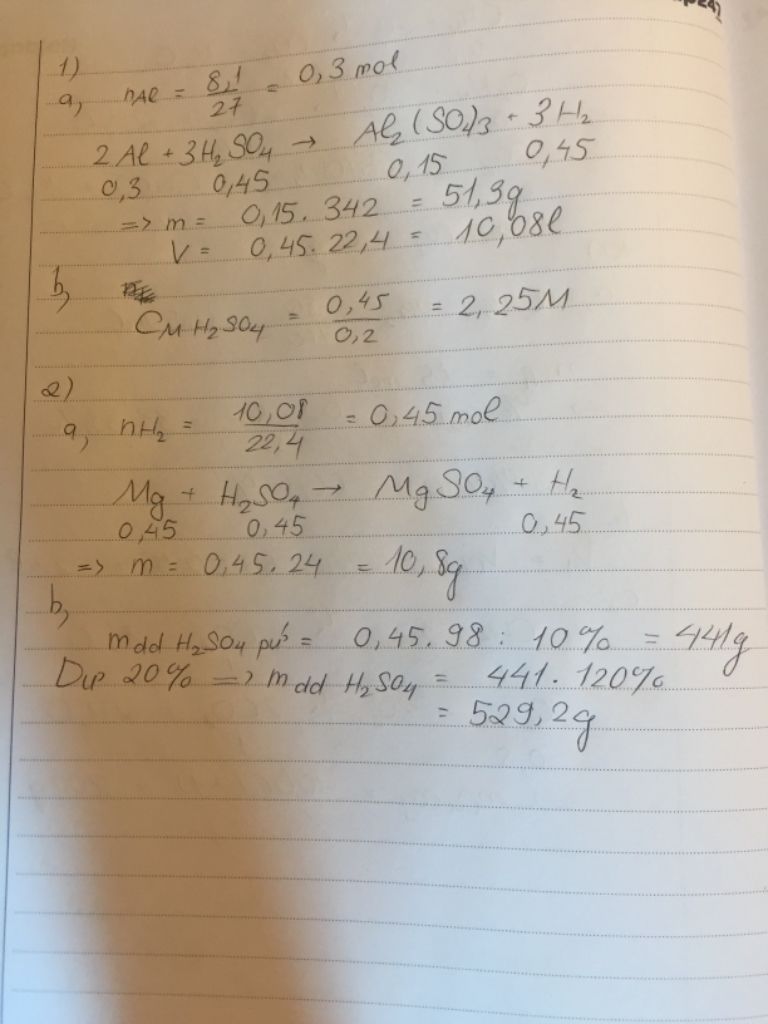 1)
a, nAl = 8,1/27 = 0,3 mol
2Al + 3H₂SO₄ → Al₂(SO₄)₃ + 3H₂
0,3 0,45 0,15 0,45
=> m = 0,15. 342 = 51,3g
V = 0,45. 22,4 = 10,08l
b,
CM H₂SO₄ = 0,45/0,2 = 2,25M
2)
a, nH₂ = 10,08/22,4 = 0,45 mol
Mg + H₂SO₄ → MgSO₄ + H₂
0,45 0,45 0,45
=> m = 0,45.24 = 10,8g
b,
mdd H₂SO₄ pứ = 0,45.98 : 10% = 441g
Dư 20% => mdd H₂SO₄ = 441. 120%
= 529,2g